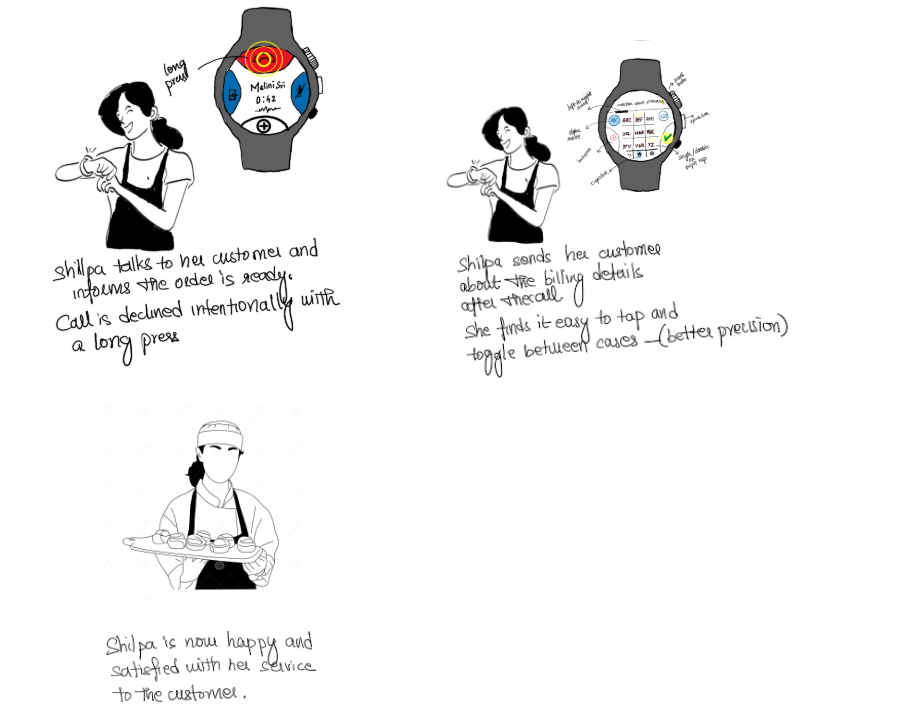 long
press
Malini Sri
0:42
Shillpa talks to her customer and
informs the order is ready.
Call is declined intentionally with
a long press
left to right
alpha
mode
ABC
123
Shilpa sends her customer
about the billing details
after the call
She finds it easy to tap and
toggle between cases – (better precision)
Shilpa is now happy and
satisfied with her service
to the customer.